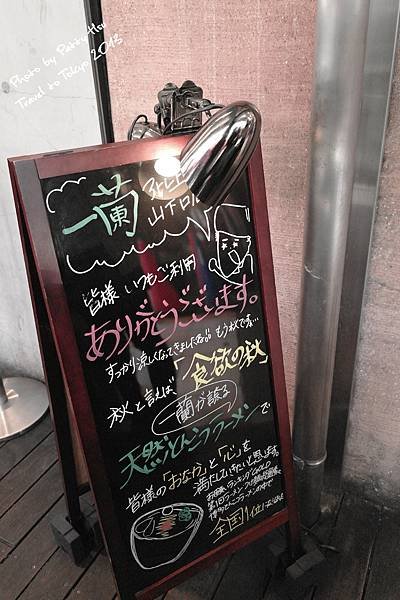 Photo by Patty Hsu
Travel to Tokyo 2013.
一蘭
山下口
皆様 いつもご利用
ありがとうございます。
すっかり涼しくなってきましたね。もう秋ですネ…
秋と言えば「食欲の秋」
一蘭が誇る
天然とんこつラーメンで
皆様の「おなか」と「心」を
満たしていきたいと思います。
全国1位